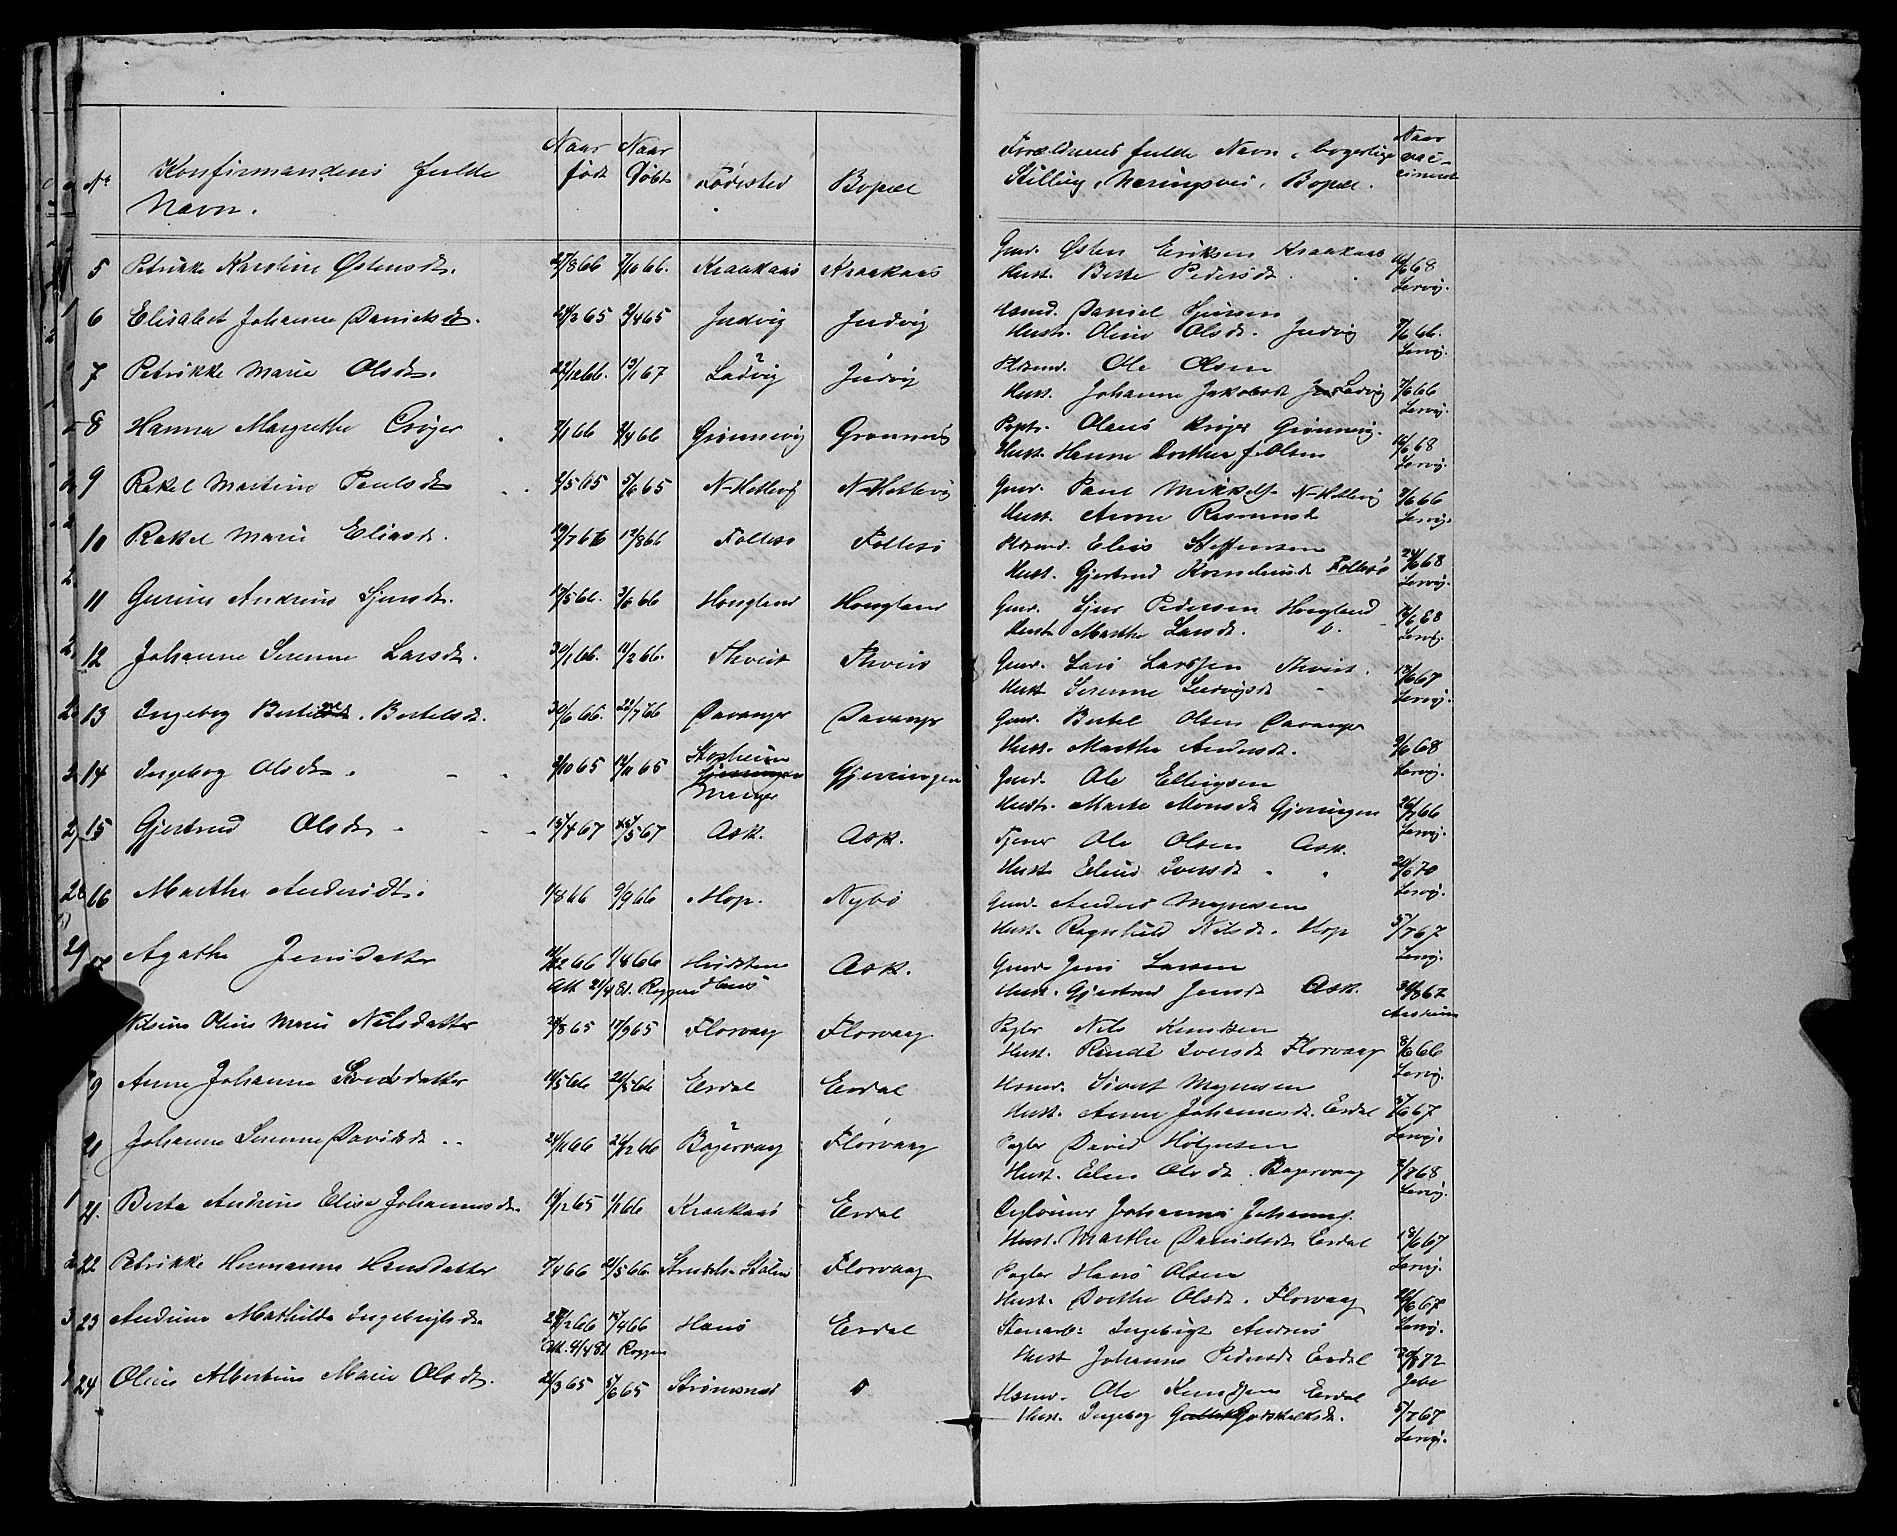 No Konfirmandens fulde Navn. | Naar født | Naar Døbt | Fødested | Bopæl | Forældrenes fulde Navn, borgerlige Stilling, Næringsvei, Bopæl. | Naar vaccineret
5 Petrikke Karoline Østensdt. 27/8 66 7/10 66. Kraakaas Kraakaas
Gmd. Østen Eriksen Kraakaas
Hust. Berte Pedersdt. 16/6 68 Lervig.
6 Elisabet Johanne Danielsdt. 24/2 65 2/4 65 Judvig Judvig
Hsmd. Daniel
Hustr. Oline Olsdt. Judvig 7/6 66. Lervig.
7 Petrikke Marie Olsdt. 22/12 66. 13/1 67 Ladvig Judvig
Hsmd. Ole Olsen
Hust. Johanne Jakobsdt Ladvig 7/6 66 Lervig.
8 Hanna Margrethe Crøger 7/1 66 2/4 66 Grønnevig Grønnevig
Olaus Krøger Grønnevig.
Hust. Hanne Dorthea Olsen 16/6 68 Lervig.
9 Rakel Martine Paulsdt 2/5 65 5/6 65 N-Hetlevig N-Hetlevig
Gmd. Paul Mikkels. N-Hetlevig
Hust. Anne Rasmusdt 7/6 66 Lervig.
10 Rakel Marie Eliasdt. 19/7 66 12/8 66 Follesø Follesø
Hsmd. Elias Steffensen
Hust. Gjertrud Korneliusdt Follesø 24/6 68 Lervig.
11 Gurine Andrine Sjursdt. 17/5 66. 3/6 66 Hougland Hougland
Gmd. Sjur Pedersen Hougland
Hust. Marthe Larsdt. 16/6 68 Lervig.
12 Johanne Serenne Larsdt. 30/1 66. 11/2 66. Thveit Thveit
Gmd. Lars Larssen Thveit.
Hust Serenne Ludvigsdt 12/6 67 Lervig.
13 Ingebog Bertine. Bertelsdt. 30/6 66. 22/7 66 Davanger Davanger
Gmd. Bertel Olsen Davanger
Hust. Marthe Andersdt. 9/6 68 Lervig.
14 Ingebog Olsdt. 9/10 65 19/11 65 Manger Gjerningen
Gmd. Ole Ellingsen
Hustr. Marte Monsdt Gjerningen 26/7 66 Lervig.
15 Gjertrud Olsdt 15/4 67 5/67 Ask. Ask.
Tjener Ole Olsen Ask.
Hust Eline Iversdt 24/6 70 Lervig.
16 Marthe Andersdt. 1/8 66 9/9 66 Hop. Nybø
Gmd. Anders Magnesen
Hust. Ragnhild Nilsdt. Hop 5/7 67 Lervig.
Agathe Jensdatter 2 66 1/4 66 Haus Ask.
Att. 21/4 81. Roggen
Gmd. Jens Larsen
Hust. Gjertrud Jensdt Ask. 8 67
Nilsine Oline Marie Nilsdatter 8 65 17/9 65 Florvaag Florvaag
Pagter Nils Knudsen
Hust. Iversdt Florvaag 8/6 66 Lervig.
19 Anne Johanne Sivertsdatter 11/5 66 21/5 66 Erdal Erdal
Hsmd. Sivert Magnesen
Hust. Anne Johannesdt. Erdal 5/6 67 Lervig.
Johanne Serenne Davidsdt 24/11 66 26/12 66 Bøgervaag Florvaag
Pagter David
Hust. Elen Olsdt. Bøgervaag 7 68 Lervig.
21. Berta Andrine Elise Johannesdt. 19/12 65 1/1 66 Kraakaas Erdal
Johannes Johannes.
Hust. Marthe Danielsdt Erdal 18/6 67 Lervig.
22 Petrikke Hermanne Hansdatter 7/4 66 21/5 66. Florvaag
Pagter Hans Olsen
Hust. Dorthe Olsdt. Florvaag 6 67 Lervig.
23 Andrine Mathilde Ingebrigtsdt 2 66 15/4 66 Haus Erdal
Att. 9/4 81 Roggen
Stenarb: Ingebrigt Anders
Hust Johanne Pedersdt Erdal 8 72
24 Oline Albertine Marie Olsdt. 21/3 65 5/6 65 Strømsnes "
Hsmd. Ole Knudsen Erdal
Hust. Ingebog Godskalksdt. 5/7 67 Lervig.